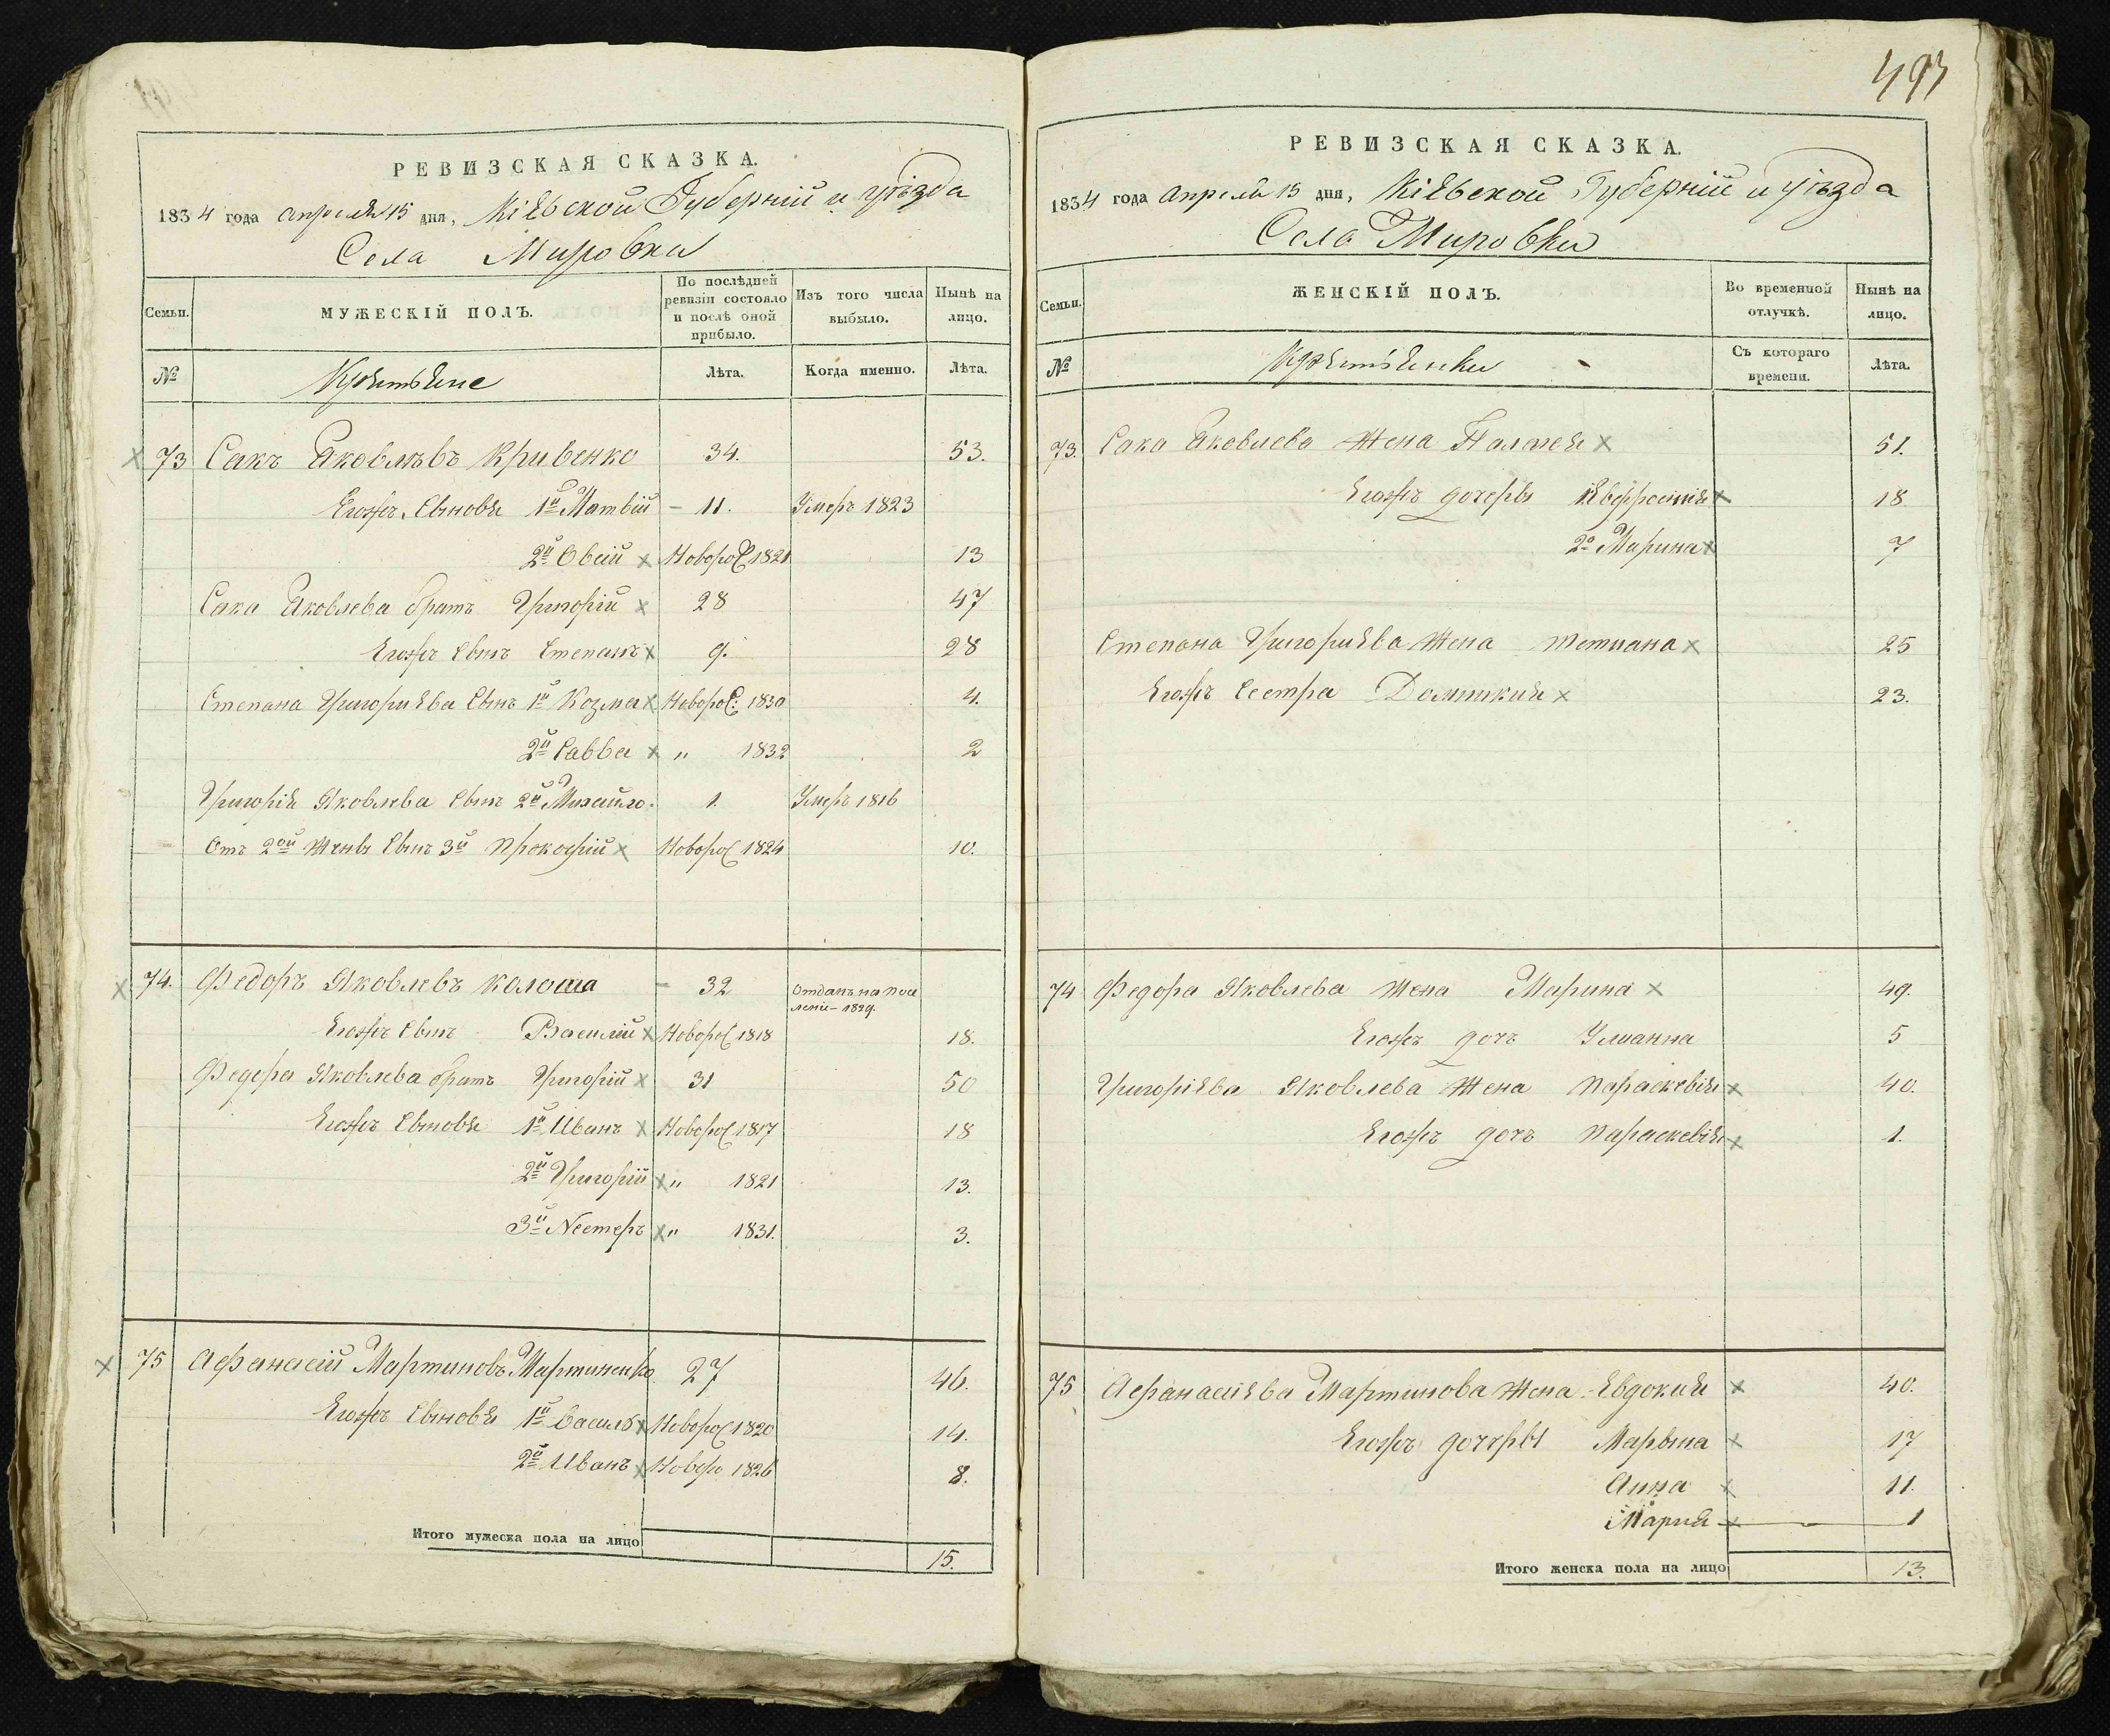 РЕВИЗСКАЯ СКАЗКА.
1834 года апреля 15 дня, Кіевской Губерніи и уѣзда
Села Мировки
Семьи. МУЖЕСКІЙ ПОЛЪ. По послѣдней ревизіи состояло и послѣ оной прибыло. Изъ того числа выбыло. Нынѣ на лицо.
№ Крестьяне Лѣта. Когда именно. Лѣта.
73 Сакъ Яковлевъ Кривенко 34. 53.
Егожъ Сыновья 1й Матвій - 11. Умеръ 1823
2й Овсій Новорож 1821 13
Сака Яковлева братъ Григорій 28 47
Егожъ Сынъ Степанъ 9. 28
Степана Григориева Сынъ 1й Козма Новорож: 1830 4.
2й Савва " 1832 2
Григорія Яковлева Сынъ 2й Михайло. 1. Умеръ 1816
Отъ 2ой Жены Сынъ 3й Прокофій Новорож 1824 10.
74. Федоръ Яковлевъ Колоша - 32 Отданъ на посе
леніе - 1829.
Егожъ Сынъ Василій Новорож 1818 18.
Федора Яковлева братъ Григорій 31 50
Егожъ Сыновья 1й Иванъ Новорож 1817 18
2й Григорій " 1821 13.
3й Нестеръ " 1831. 3.
75 Афанасій Мартиновъ Мартиненко 27 46.
Егожъ Сыновья 1й Василь Новорож 1820 14.
2й Иванъ Новоро 1826 8.
Итого мужеска пола на лицо 15.
493
РЕВИЗСКАЯ СКАЗКА.
1834 года Апреля 15 дня, Кіевской Губерніи и уѣзда
Села Мировки
Семьи. ЖЕНСКІЙ ПОЛЪ. Во временной отлучкѣ. Нынѣ на лицо.
№ Крестьянки Съ котораго времени. Лѣта.
73. Сака Яковлева Жена Палагея 51.
Егожъ дочеры 1я Ефросинія 18
2я Марина 7
Степана Григориева Жена Тетиана 25
Егожъ Сестра Домникия 23.
74 Федора Яковлева Жена Марина 49.
Егожъ дочъ Улианна 5
Григоріева Яковлева Жена Параскевія 40.
Егожъ дочъ Параскевія 1.
75 Афанасиева Мартинова Жена Евдокия 40.
Егожъ дочеры Марына 17
Анна 11.
Мария 1
Итого женска пола на лицо 13.